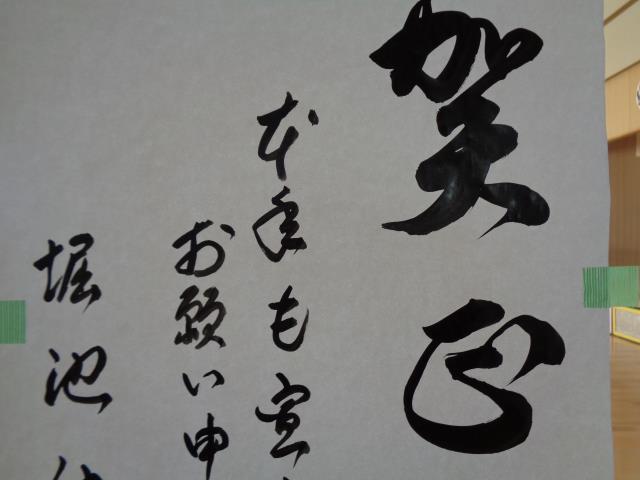 賀正
本年も宜
お願い申
堀池